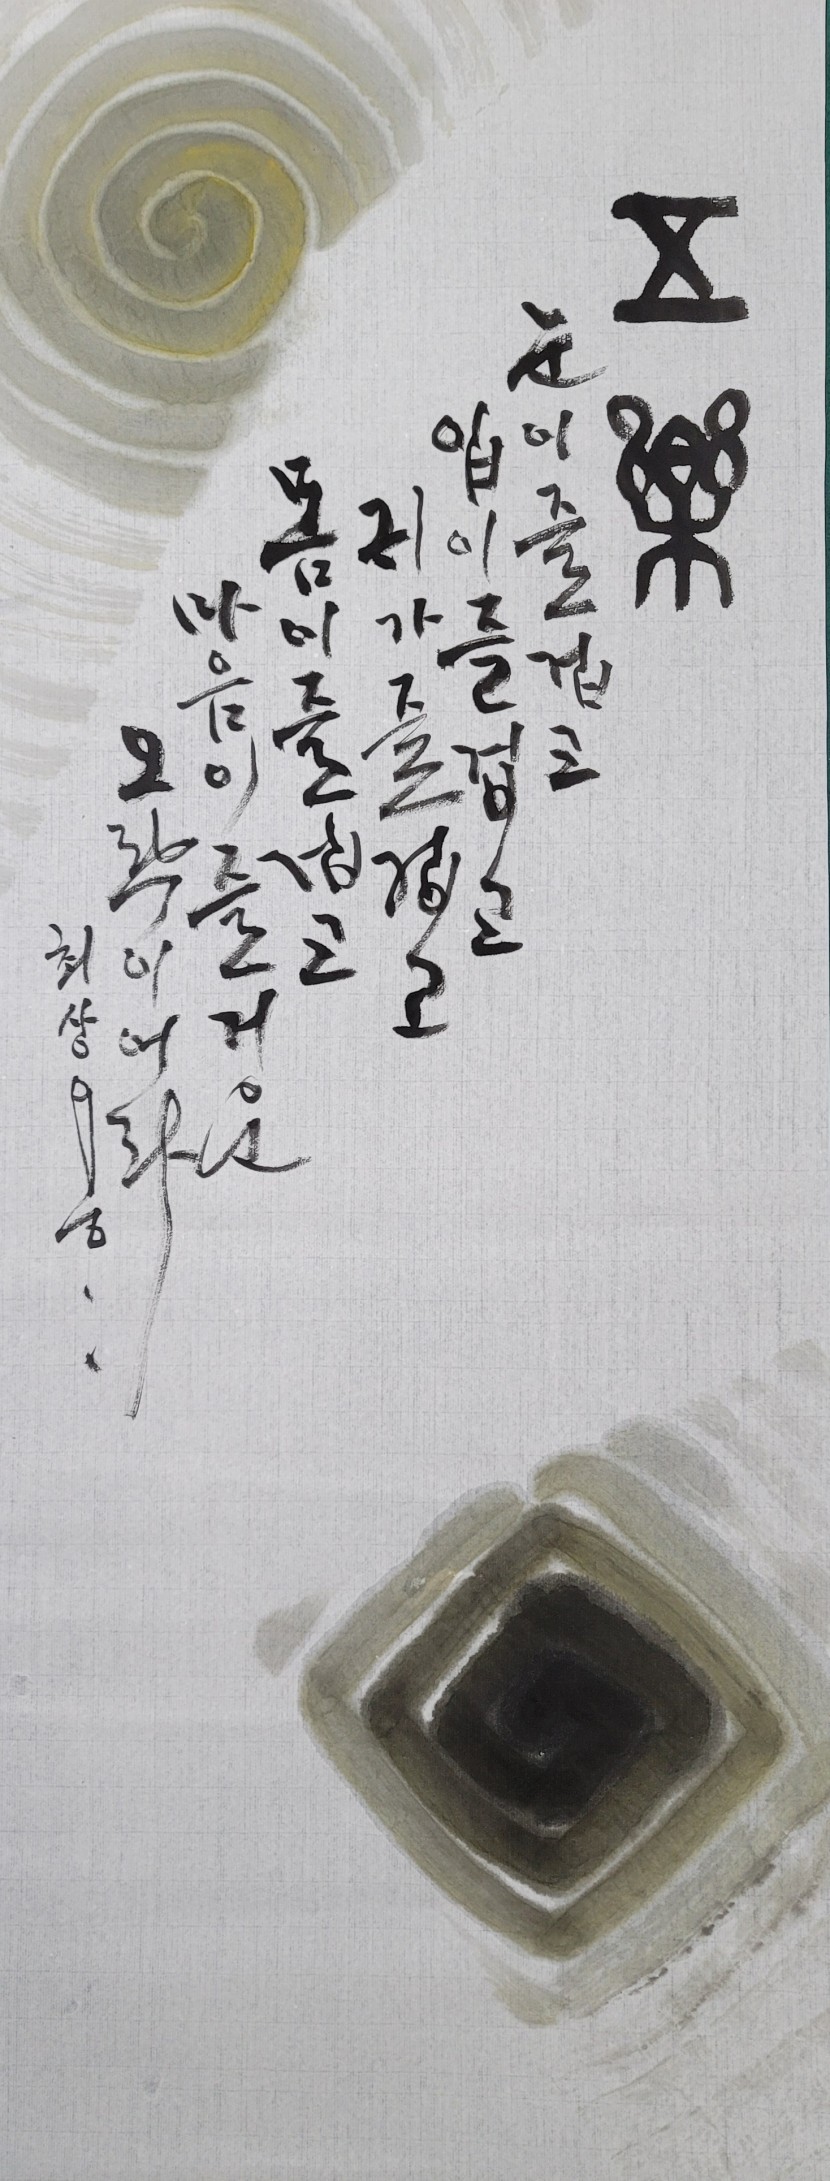 五樂
눈이즐겁고
입이즐겁고
귀가즐겁고
몸이즐겁고
마음이즐거운
오락이어라
최상